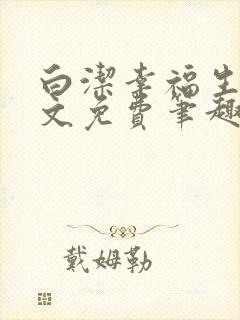 白潔幸福生
文免費筆趣
戴姆勒